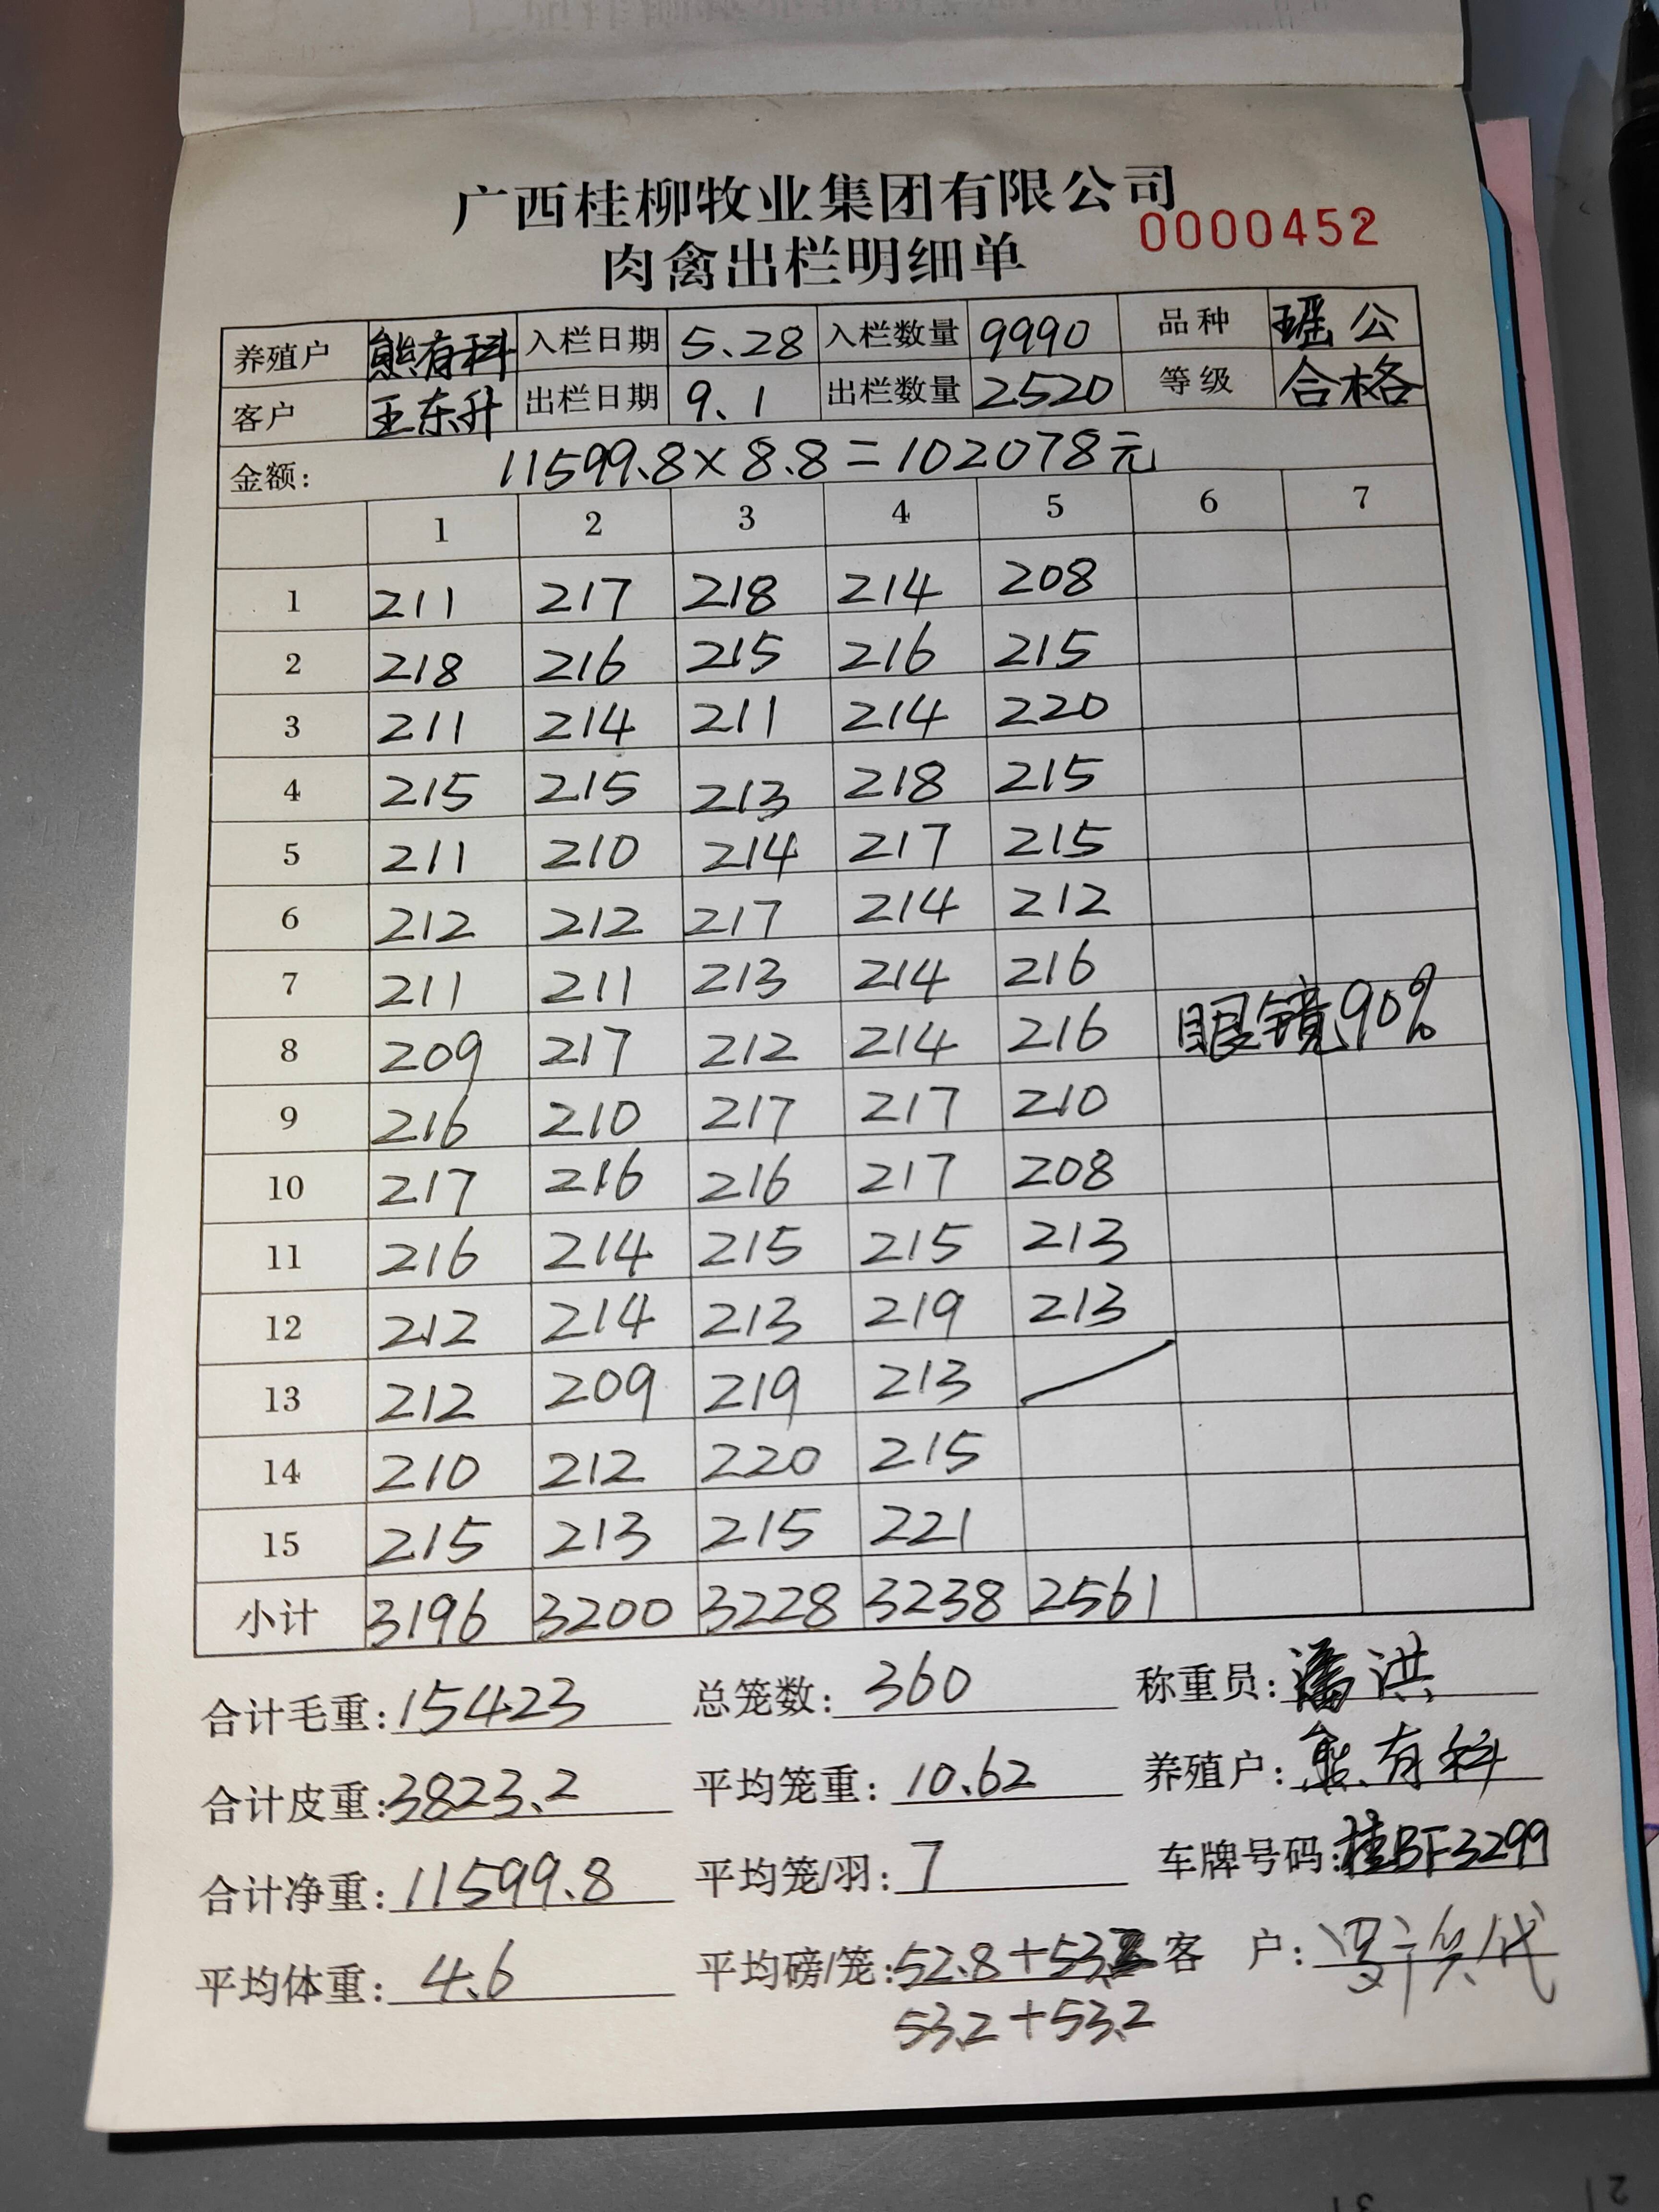 广西桂柳牧业集团有限公司
肉禽出栏明细单 0000452
养殖户 熊有科 入栏日期 5.28 入栏数量 9990 品种 瑶公
客户 王东升 出栏日期 9.1 出栏数量 2520 等级 合格
金额: 11599.8×8.8=102078元
1 2 3 4 5 6 7
1 211 217 218 214 208
2 218 216 215 216 215
3 211 214 211 214 220
4 215 215 213 218 215
5 211 210 214 217 215
6 212 212 217 214 212
7 211 211 213 214 216
8 209 217 212 214 216 眼镜90%
9 216 210 217 217 210
10 217 216 216 217 208
11 216 214 215 215 213
12 212 214 213 219 213
13 212 209 219 213
14 210 212 220 215
15 215 213 215 221
小计 3196 3200 3228 3238 2561
合计毛重:15423 总笼数:360 称重员:潘洪
合计皮重:3823.2 平均笼重:10.62 养殖户:熊有科
合计净重:11599.8 平均笼/羽:7 车牌号码:桂BF3299
平均体重:4.6 平均磅/笼:52.8+53.2 客户:
53.2+53.2